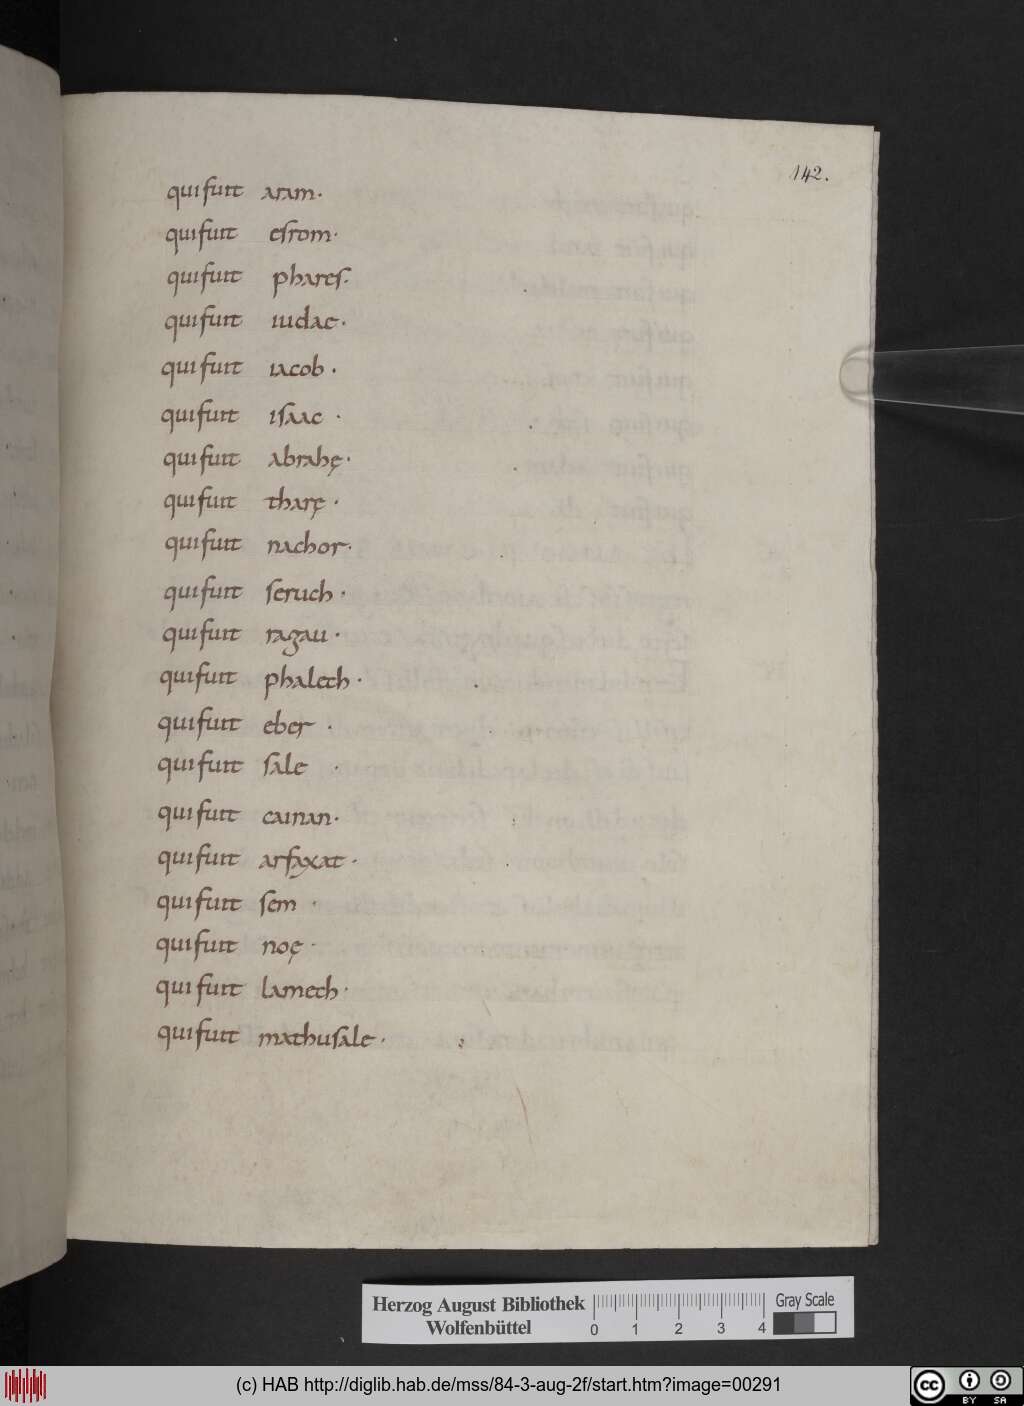 142.
qui fuit aram.
qui fuit esrom.
qui fuit phares.
qui fuit iudae.
qui fuit iacob.
qui fuit isaac.
qui fuit abrahę.
qui fuit tharę.
qui fuit nachor.
qui fuit seruch.
qui fuit ragau.
qui fuit phalech.
qui fuit eber.
qui fuit sale.
qui fuit cainan.
qui fuit arfaxat.
qui fuit sem.
qui fuit noę.
qui fuit lamech.
qui fuit mathusale.
Herzog August Bibliothek
Wolfenbüttel
0 1 2 3 4
Gray Scale
(c) HAB http://diglib.hab.de/mss/84-3-aug-2f/start.htm?image=00291
cc BY SA